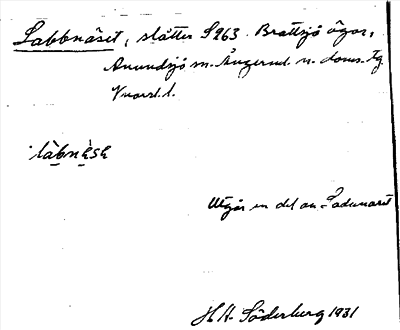 Labbnäset, slåtter S263. Brattsjö ägor,
Anundsjö sn. Ångerml. n. doms. tg
Vnorrl. l.
làbnèsɛ
Utgår en del av Ladunäset
H A. Söderberg 1931